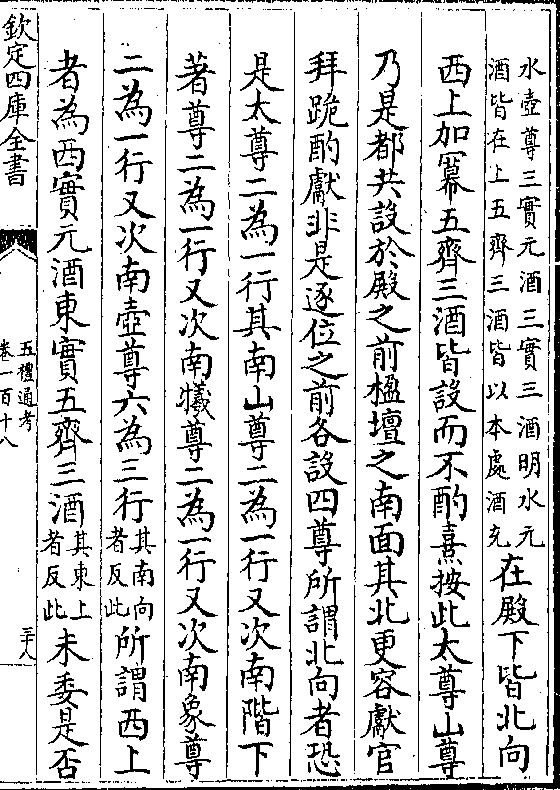 水壺尊三實元酒三實三酒明水元
酒皆在上五齊三酒皆以本處酒充
在殿下皆北向
西上加冪五齊三酒皆設而不酌熹按此太尊山尊
乃是都共設於殿之前楹壇之南面其北更容獻官
拜跪酌獻非是逐位之前各設四尊所謂北向者恐
是太尊二為一行其南山尊二為一行又次南階下
著尊二為一行又次南犧尊二為一行又次南象尊
二為一行又次南壺尊六為三行
其南向
者反此
所謂西上
者為西實元酒東實五齊三酒
其東上
者反此
未委是否
欽定四庫全書
五禮通考
卷一百十八